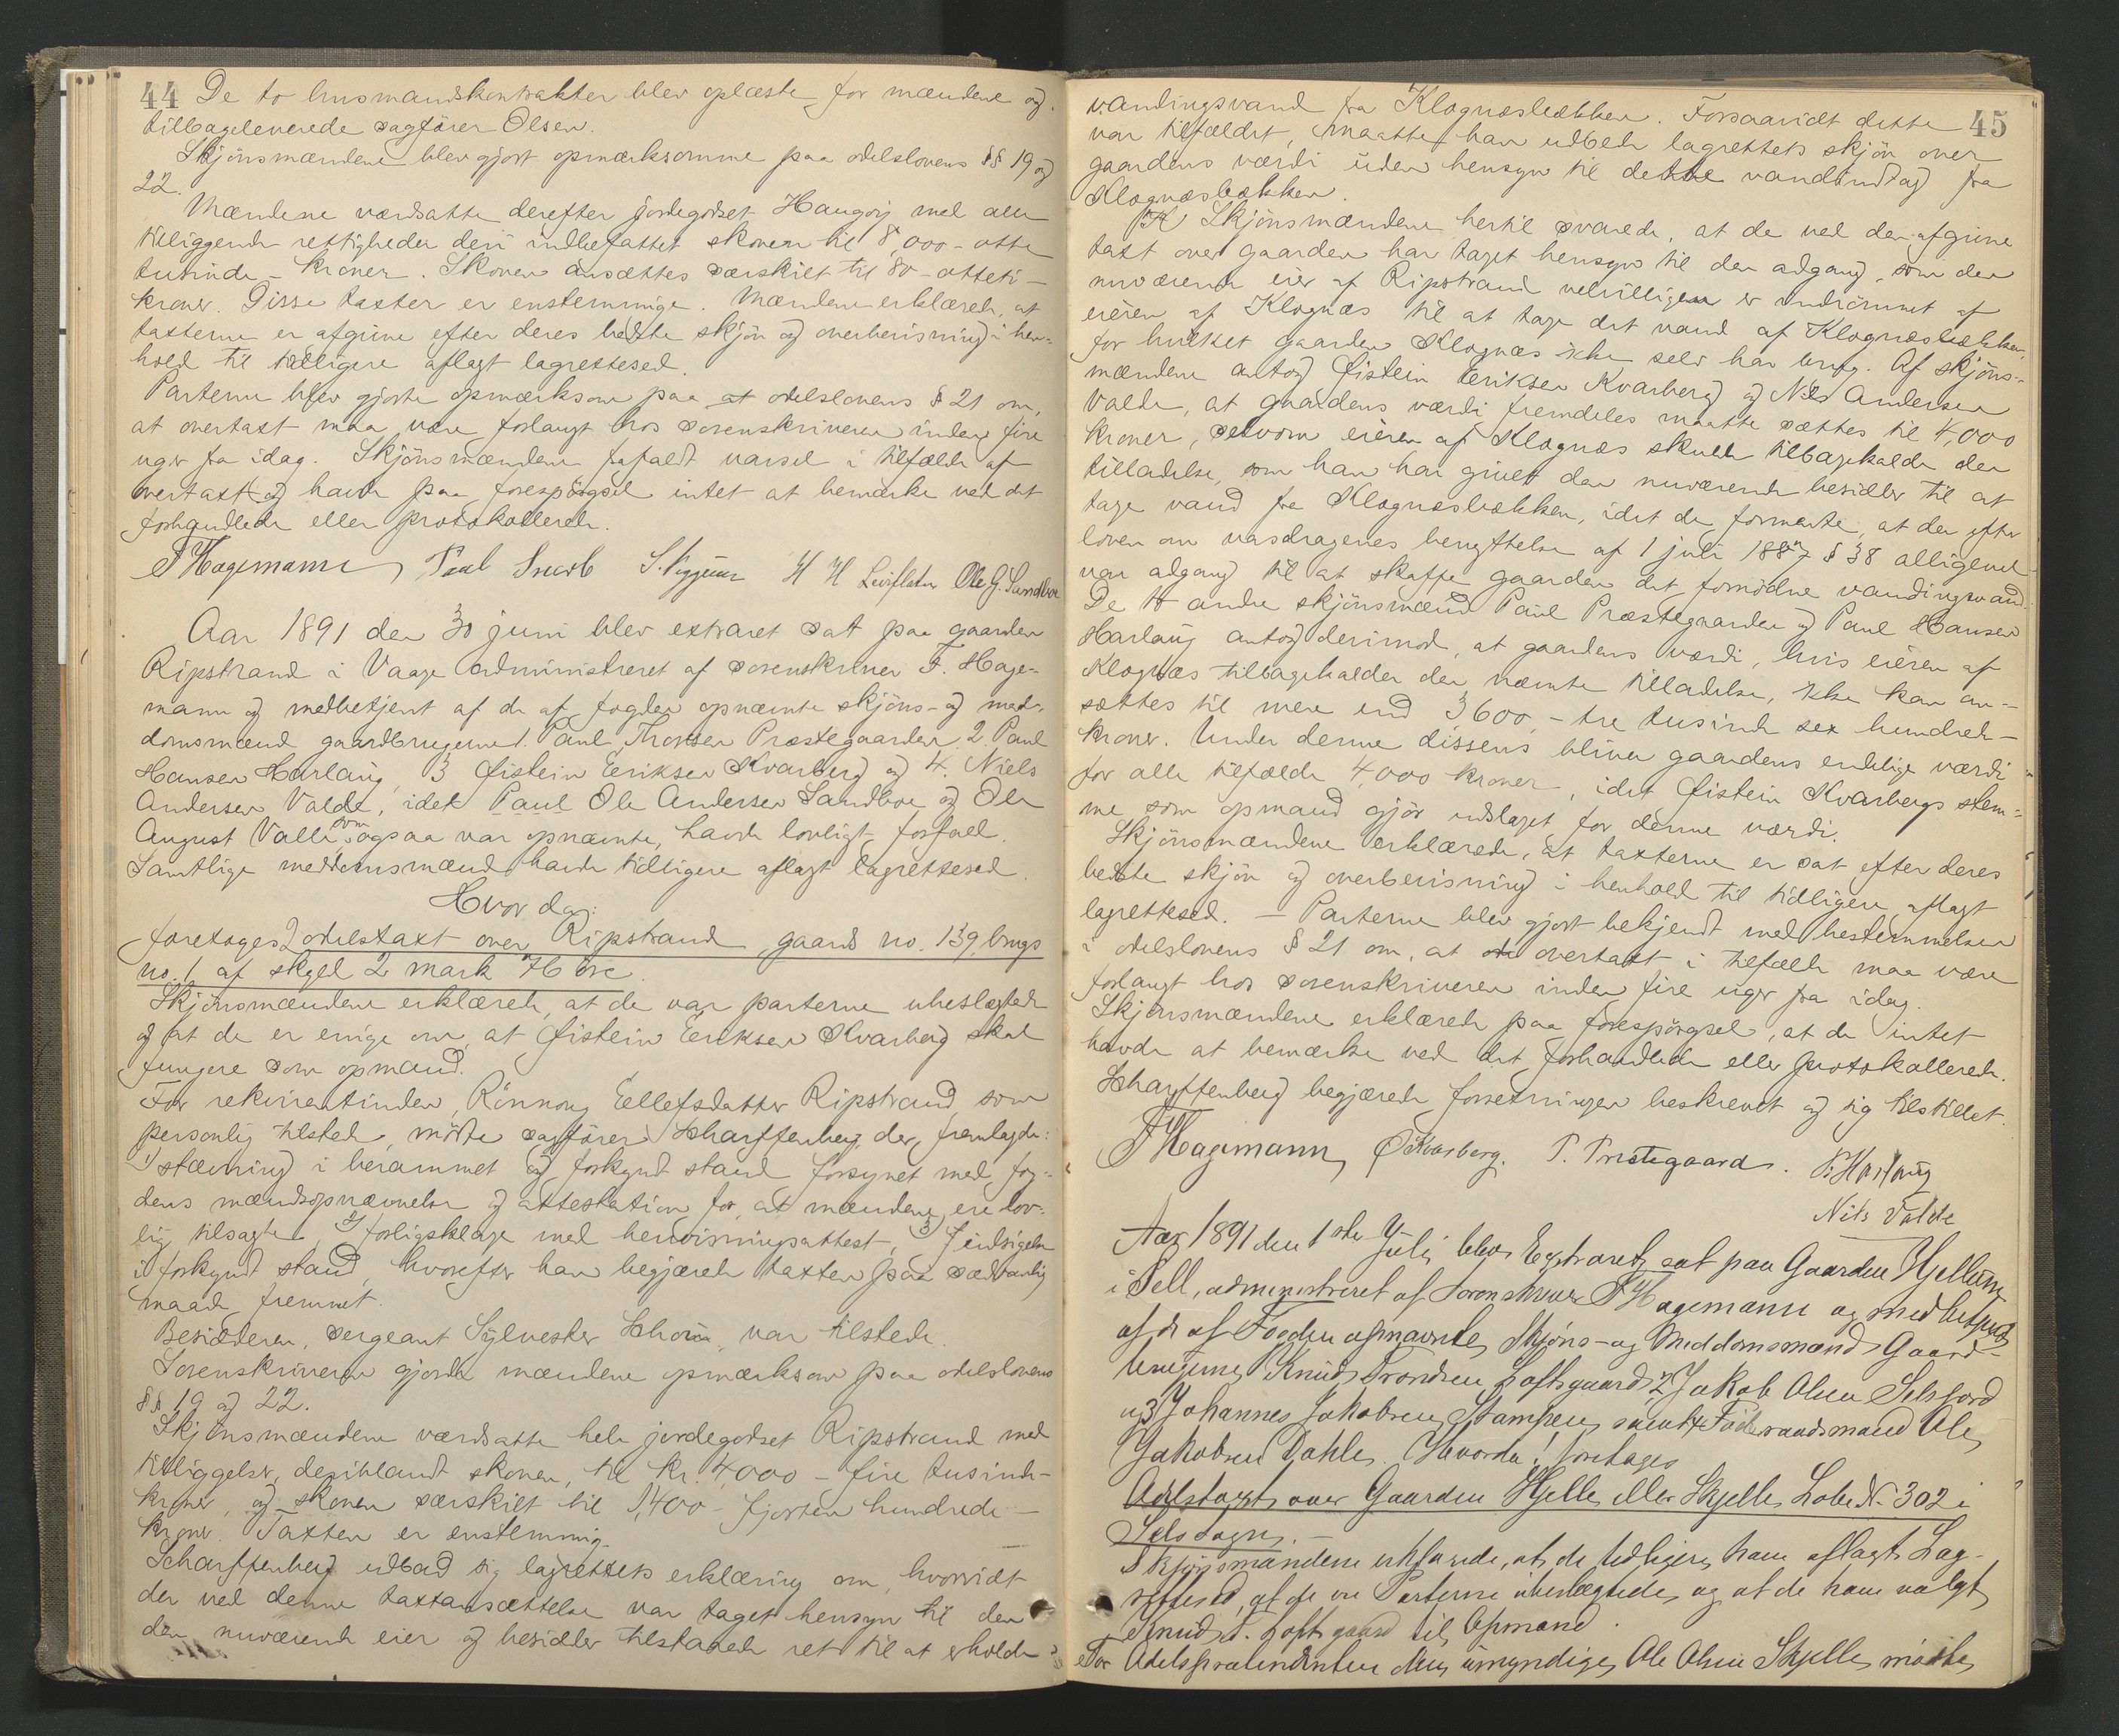 44 De to husmandskontrakter blev oplæste for mændene og
tilbageleverede sagfører Olsen.
Skjönsmændene blev gjort opmærksomme paa odelslovens §§ 19 og
22.
Mændene værdsatte derefter jordegodset Haugøij med alle
tilliggende rettigheder deri indbefattet skoven til 8,000 - otte
tusinde - kroner. Skoven ansættes særskilt til 80 - otteti -
kroner. Disse taxter er enstemmige. Mændene erklærede, at
taxterne er afgivne efter deres bedste skjön og overbevisning i hen-
hold til tidligere aflagt lagrettesed.
Parterne blev gjorte opmærksom paa at odelslovens § 21 om,
at overtaxt maa være forlangt hos sorenskriveren inden fire
uger fra idag. Skjönsmændene frafaldt varsel i tilfælde af
overtaxt og havde paa forespörgsel intet at bemærke ved det
forhandlede eller protokollerede.
F Hagemann, Paul H H Ole G. Sandboe
Aar 1891 den 30 juni blev extraret sat paa gaarden
Ripstrand i Vaage administreret af sorenskriver F. Hage-
mann og medbetjent af de af fogden opnævnte skjöns- og med-
domsmænd gaardbrugerne 1. Paul Thorsen Præstegaarden, 2. Paul
Hansen Harlaug, 3 Øistein Eriksen Kvarberg og 4. Niels
Andersen Valde, idet Paul Ole Andersen Sandboe og Ole
August Valle, som ogsaa var opnævnte, havde lovligt forfald.
Samtlige meddomsmænd havde tidligere aflagt lagrettesed.
Hvor da:
foretoges odelstaxt over Ripstrand gaards no. 139 brugs
no. 1 af skyld 2 mark 76 öre.
Skjönsmændene erklærede, at de var parterne ubeslægtede
og at de er enige om, at Øistein Eriksen Kvarberg skal
fungere som opmand.
For rekvirentinden, Rönnoug Ellefsdatter Ripstrand, som
personlig tilstede, mödte sagförer Scharffenberg, der fremlagde:
1) stævning i berammet og forkyndt stand forsynet med fog-
dens mandsopnævnelse og attestation for, at mændene ere lov-
lig tilsagte, 2) forligsklage med henvisningsattest, 3) indsigelse
i forkyndt stand, hvorefter han begjærede taxten paa sædvanlig
maade fremmet.
Besidderen, sergeant Sylvester Schou, var tilstede.
Sorenskriveren gjorde mændene opmærksom paa odelslovens
§§ 19 og 22.
Skjönsmændene værdsatte hele jordegodset Ripstrand med
tilliggelser, deriblandt skoven, til kr. 4,000 - fire tusinde -
kroner, og skoven særskilt til 1,400 - fjorten hundrede -
kroner. Taxten er enstemmig.
Scharffenberg udbad sig lagrettets erklæring om, hvorvidt
der ved denne taxtansættelse var taget hensyn til den
den nuværende eier og besidder tilstaaede ret til at erholde
45
vandingsvand fra Klognæsbækken. Forsaavidt dette
var tilfældet, maatte han udbede lagrettets skjön over
gaardens værdi uden hensyn til dette vandindtag fra
Klognæsbækken.
Skjönsmændene hertil svarede, at de ved den afgivne
taxt over gaarden har taget hensyn til den adgang, som den
nuværende eier af Ripstrand velvilligen er indrömmet af
eieren af Klognæs til at tage det vand af Klognæsbækken,
for hvilket gaarden Klognæs ikke selv har brug. Af skjöns-
mændene antog Øistein Eriksen Kvarberg og Nils Andersen
Valde, at gaardens værdi fremdeles maatte sættes til 4,000
kroner, selvom eieren af Klognæs skulde tilbagekalde den
tilladelse, som han har givet den nuværende besidder til at
tage vand fra Klognæsbækken, idet de formente, at der efter
loven om vasdragenes benyttelse af 1 juli 1887 § 38 alligevel
var adgang til at skaffe gaarden det fornödne vandingsvand.
De to andre skjönsmænd Paul Præstegaarden og Paul Hansen
Harlaug antog derimod, at gaardens værdi, hvis eieren af
Klognæs tilbagekalder den nævnte tilladelse, ikke kan an-
sættes til mere end 3,600, - tre tusinde sex hundrede -
kroner. Under denne dissens bliver gaardens endelige værdi
for alle tilfælde 4,000 kroner, idet Øistein Kvarbergs stem-
me som opmand gjör udslaget for denne værdi.
Skjönsmændene erklærede, at taxterne er sat efter deres
bedste skjön og overbevisning i henhold til tidligere aflagt
lagrettesed. - Parterne blev gjort bekjendt med bestemmelsen
i odelslovens § 21 om, at overtaxt i tilfælde maa være
forlangt hos sorenskriveren inden fire uger fra idag.
Skjönsmændene erklærede paa forespörgsel, at de intet
havde at bemærke ved det forhandlede eller protokollerede.
Scharffenberg begjærede forretningen beskrevet og sig tilstillet.
F Hagemann, Ø Kvarberg. P. Prestegaard. P. Harlaug
Nils Valde
Aar 1891 den 1ste Juli blev Extraret sat paa Gaarden Hjellum
i Sell, administreret af Sorenskriver F Hagemann og medbetjent
af de af Fogden opnævnte Skjöns- og Meddomsmænd Gaard-
brugerne Knud Trondsen Loftsgaard, 2, Jakob Olsen Selsjord
og 3, Johannes Jakobsen Stampen samt 4 Föderaadsmand Ole
Jakobsen Dahle. Hvorda! foretages
Odelstaxt over Gaarden Hjelle eller Skjelle Løbe N. 302 i
Sels sogn. -
Skjönsmændene erklærede, at de tidligere have aflagt Lag-
rettesed, at de ere Parterne ubeslægtede, og at de have valgt
Knud T. Loftsgaard til Opmand.
For Odelsprætendenten den umyndige Ole Olsen Skjelle mödte